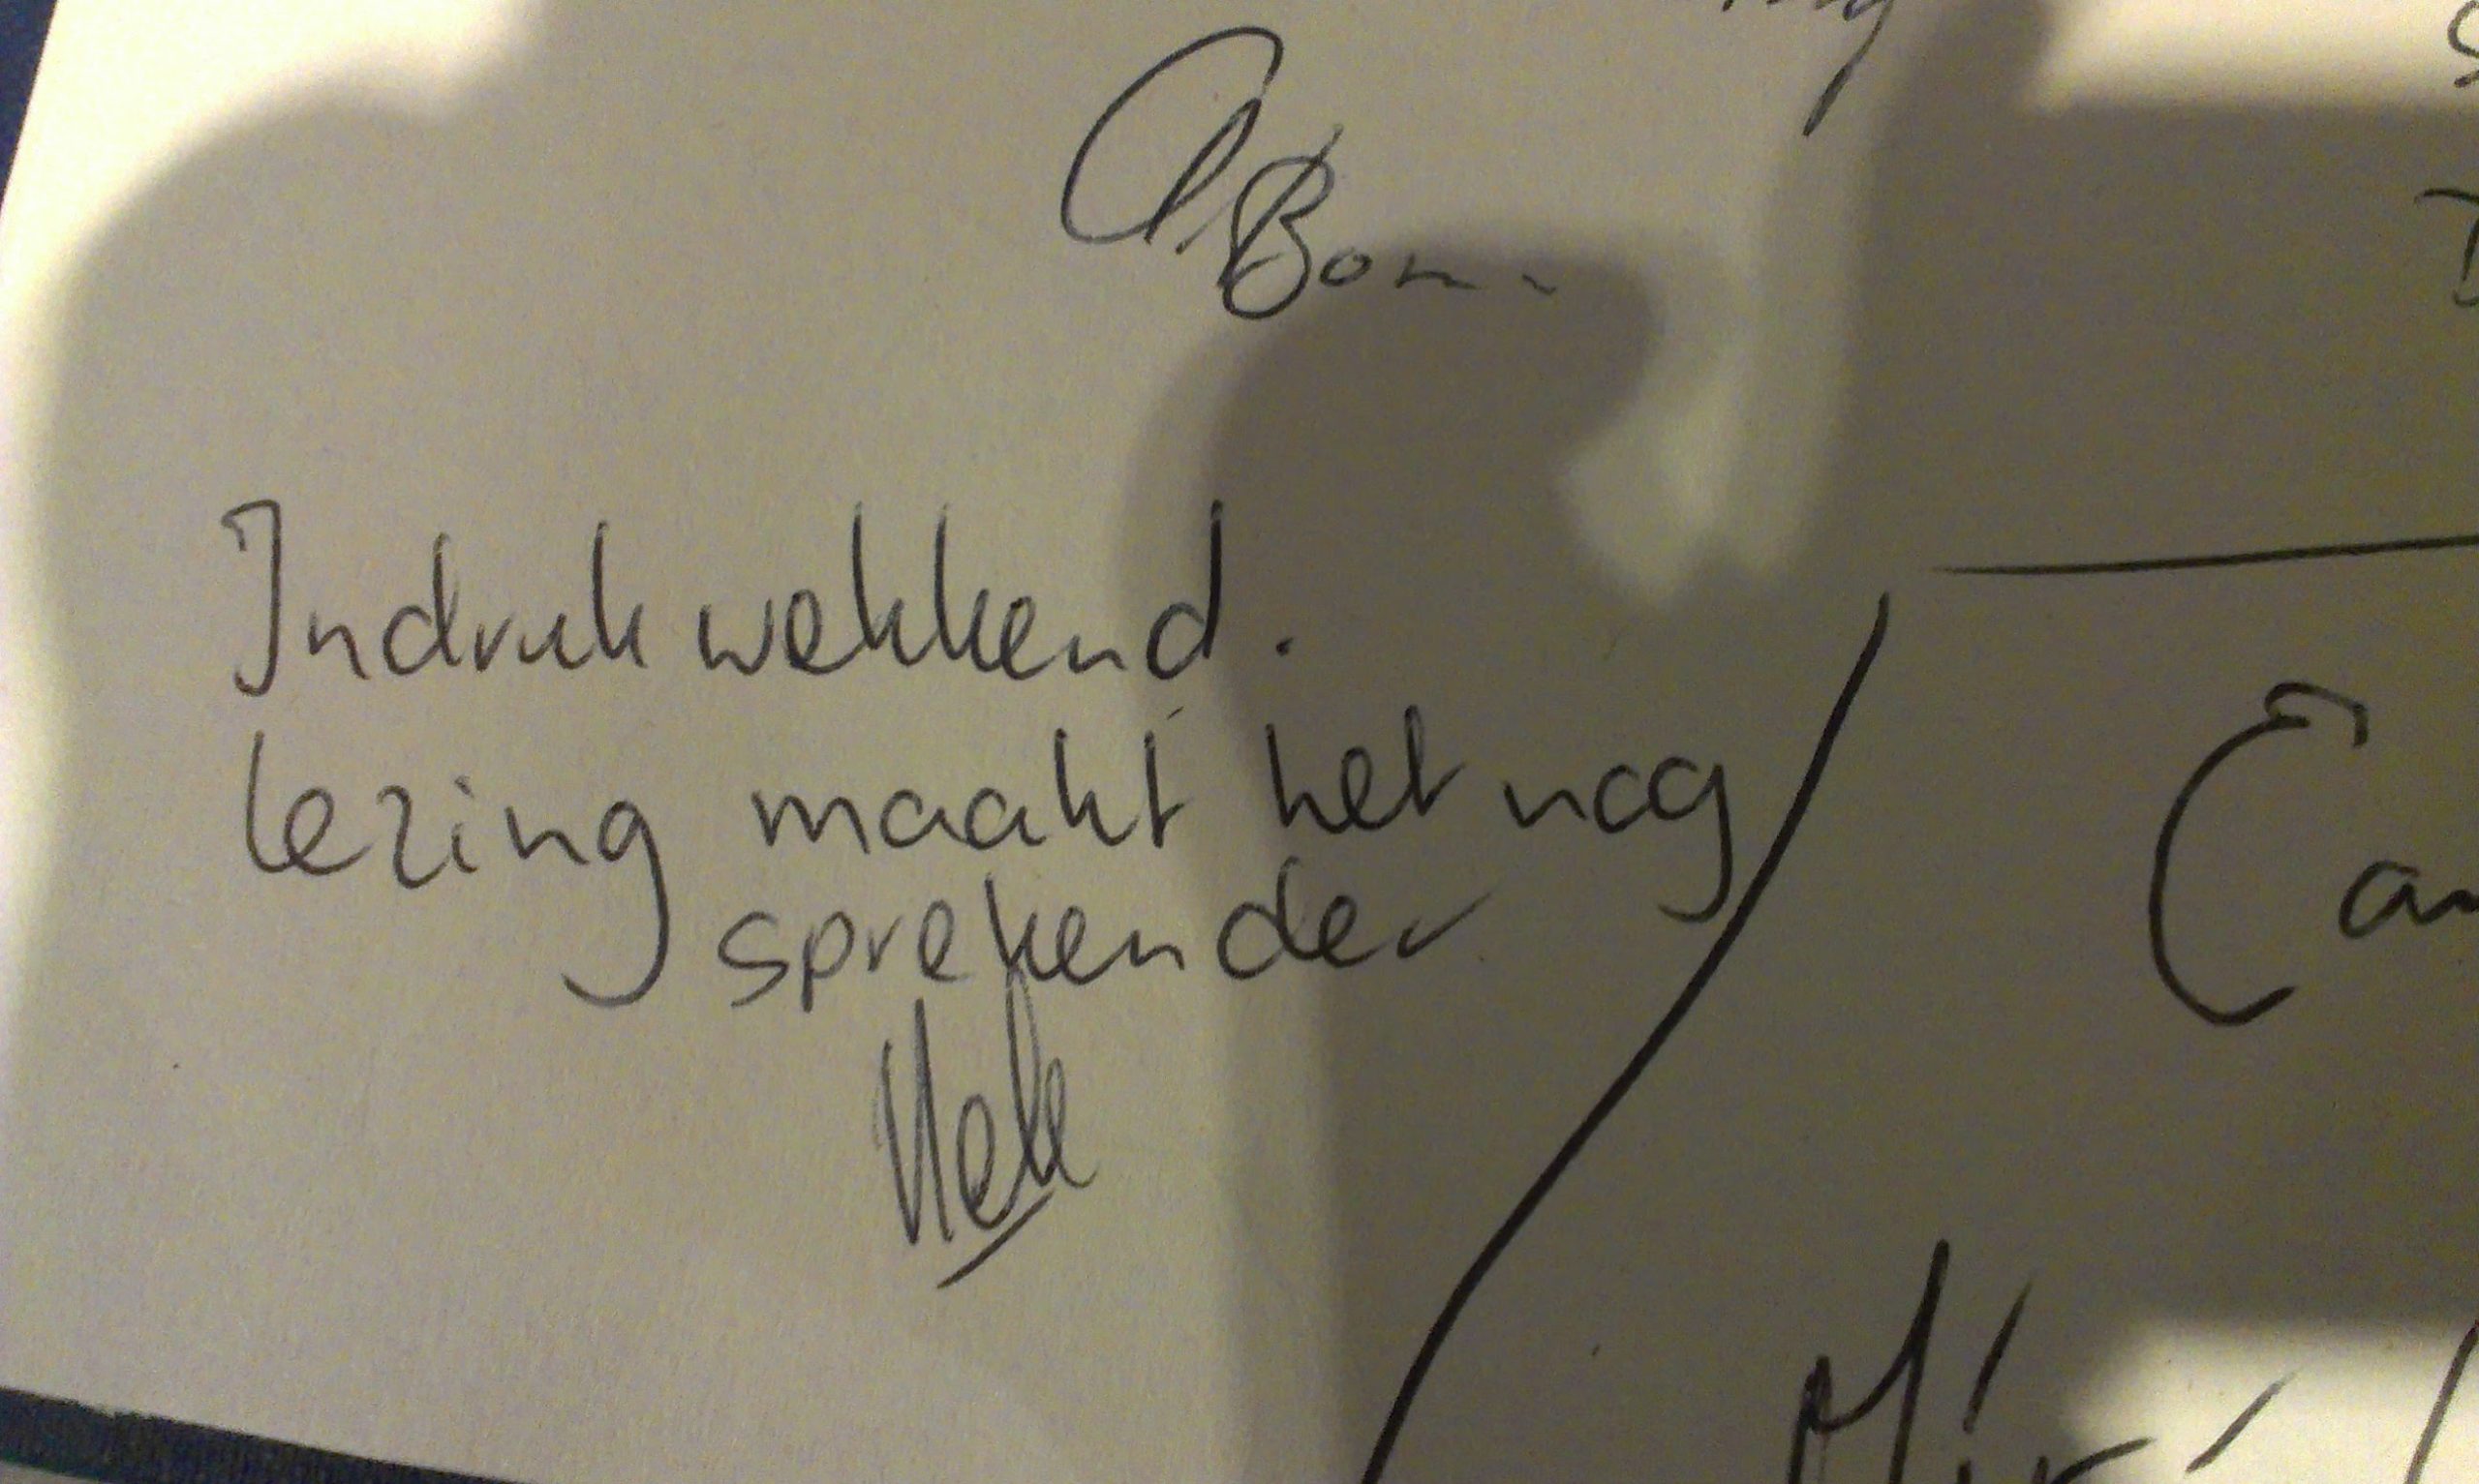 Bom
Indrukwekkend.
lezing maakt het nog
sprekender
Nele